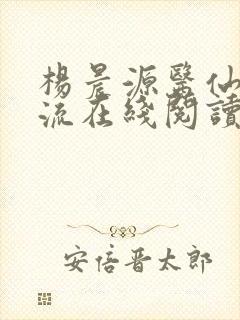 楊晨源醫仙
流在綫閱讀
安倍晉太郎